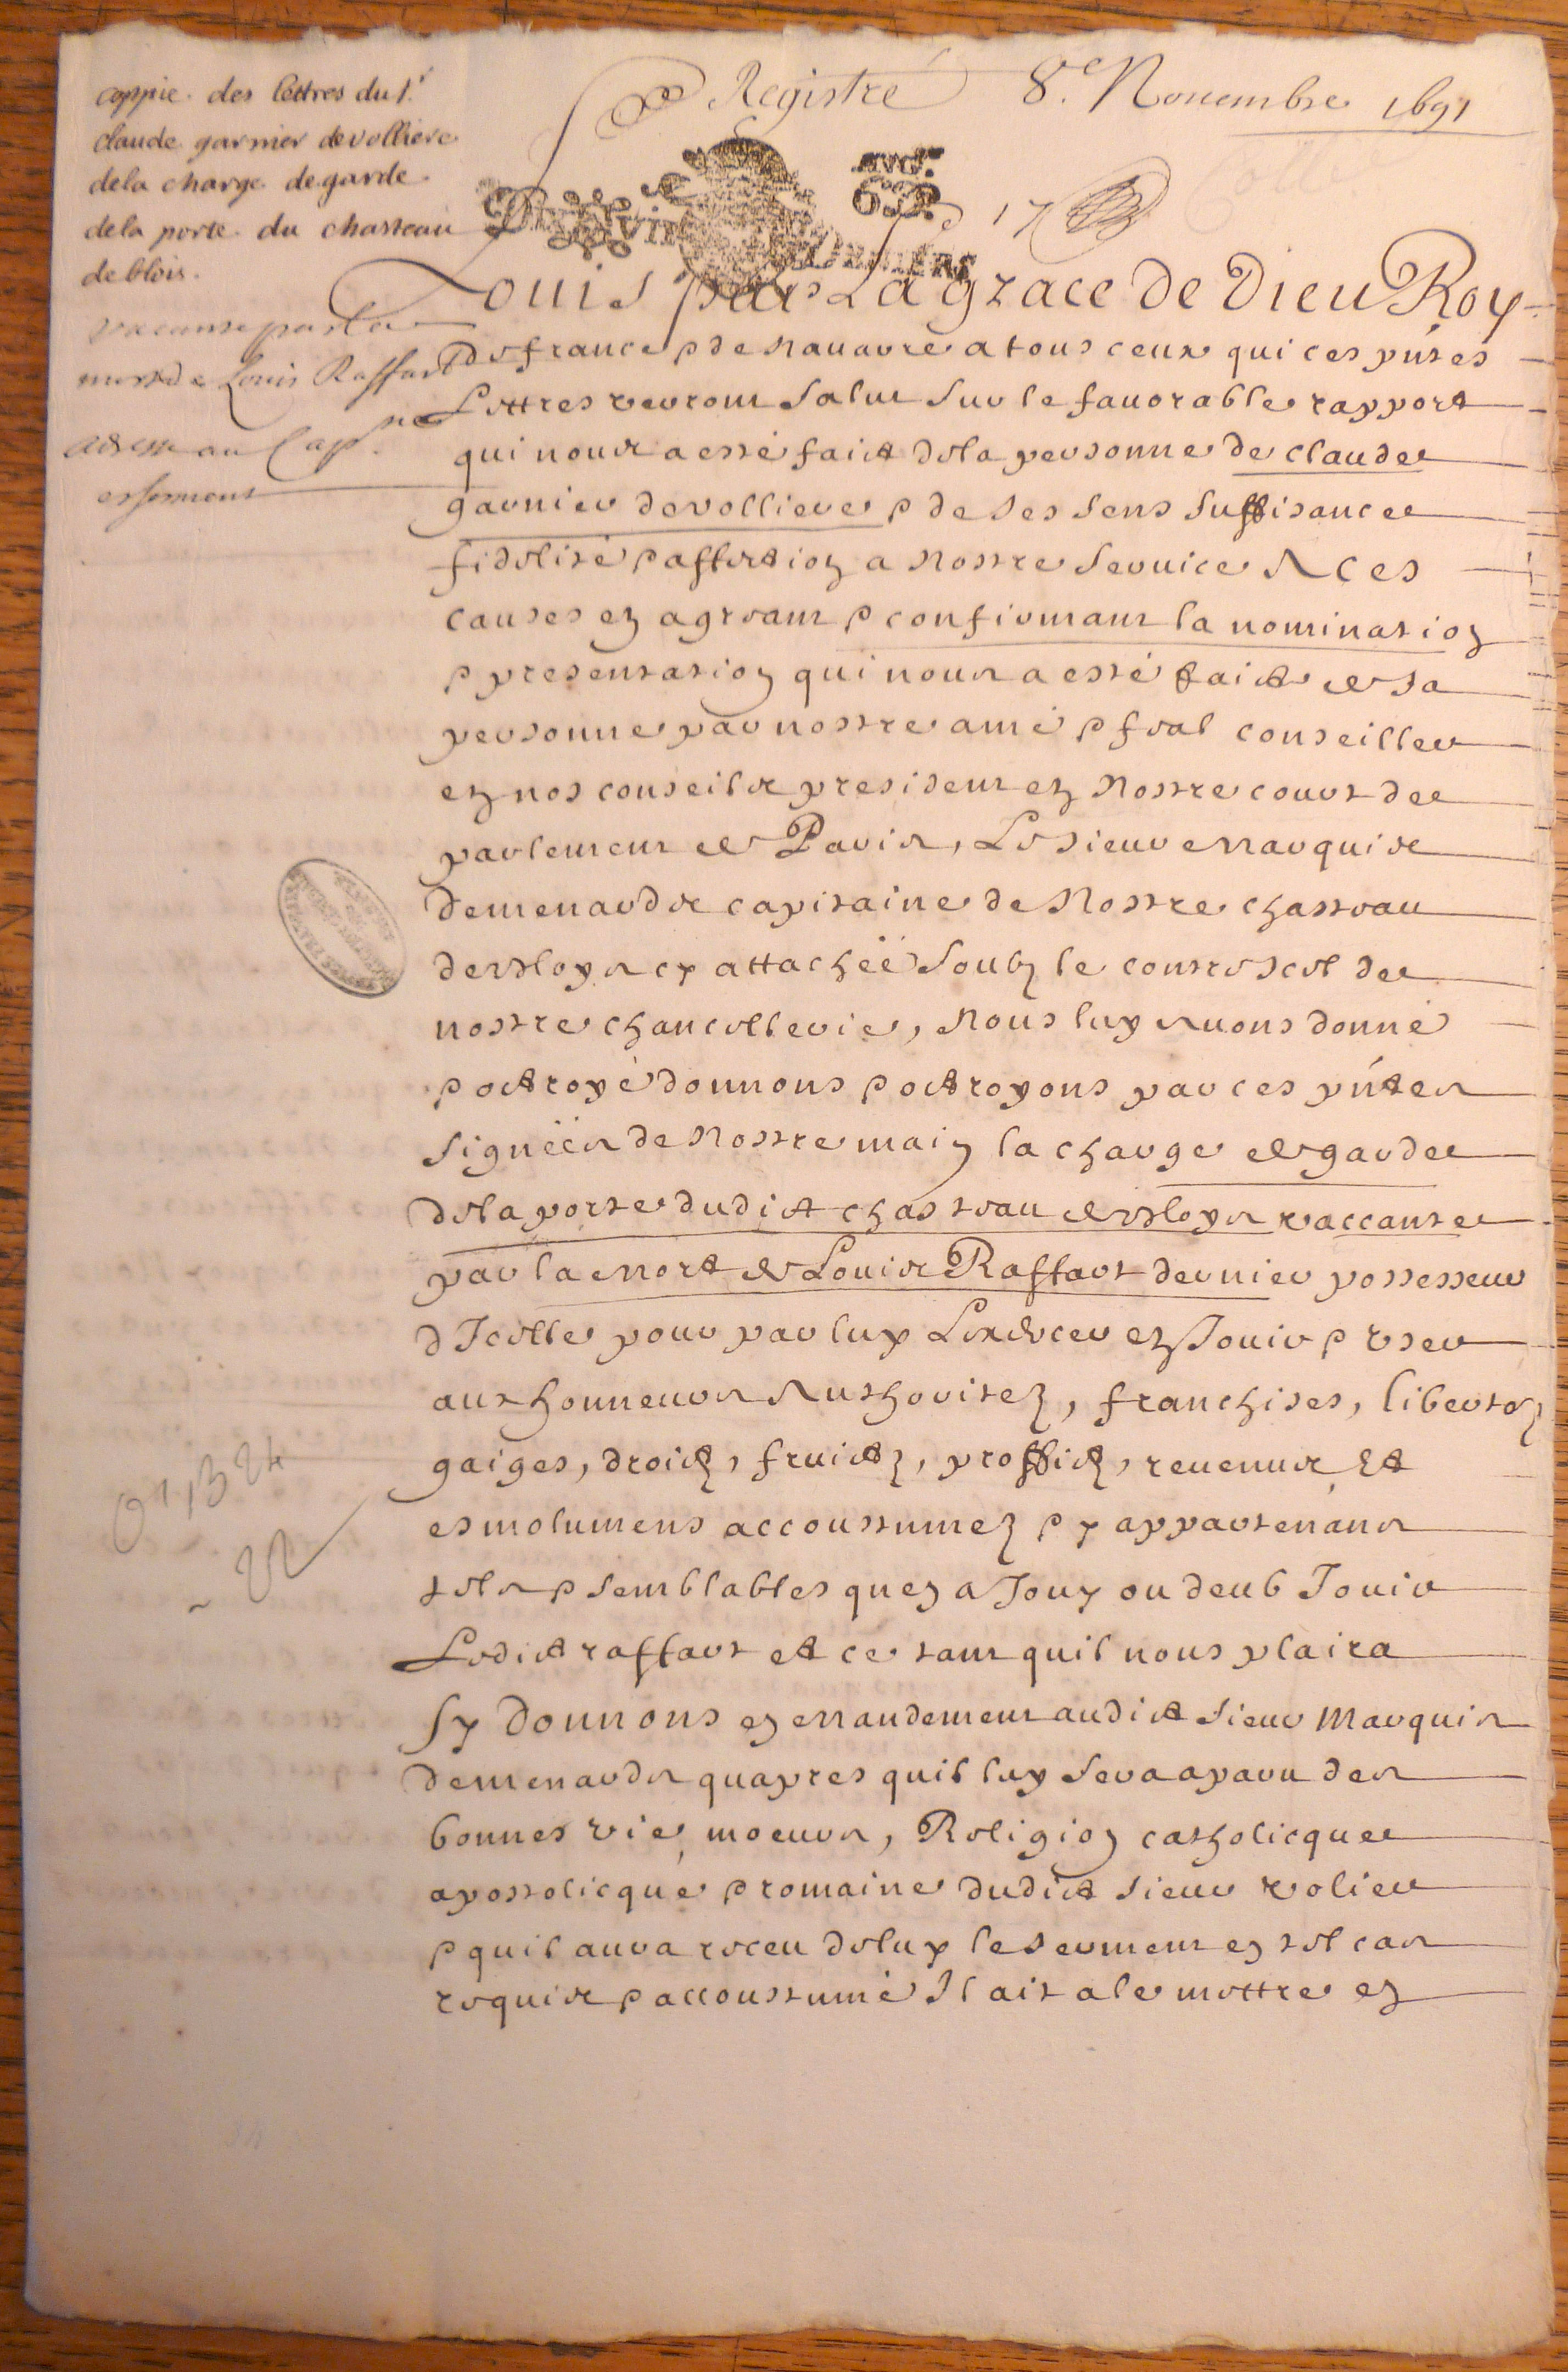 Registré 8.e Nouembre 1691
coppie des lettres du s.r
claude garnier devolliere
dela charge de garde
dela porte du chasteau
de blois.
vacante par la
mort de Louis Raffart
adresse au Cap.ne
et serment
17
Louis par La grace de Dieu Roy
de france & de nauarre a tous ceux qui ces pntes
Lettres verront Salut Sur le fauorable rapport
qui nous a esté faict de la personne de claude
garnier devolliere & de ses sens suffisance
fidelité & affection a nostre seruice A ces
causes en agreant & confirmant la nomination
& presentation qui nous a esté faicte de sa
personne par nostre amé & feal conseiller
en nos conseils president en nostre court de
parlement de Paris, Le sieur marquis
de menards capitaine de nostre chasteau
de bloys cy attachée soubz le contrescel de
nostre chancellerie, Nous luy auons donné
& octroyé donnons & octroyons par ces pntes
signées de nostre main la charge de garde
de la porte dudict chasteau de bloys vaccante
par la mort de Louis Raffart dernier possesseur
d Icelle pour par luy Lexercer en Jouir & vser
aux honneurs Authoritez, franchises, libertez
gaiges, droictz, fruictz, proffictz, reuenus Et
esmolumens accoustumez & y appartenans
tels & semblables quen a Jouy ou deub Jouir
Ledict raffart et ce tant quil nous plaira
Sy Donnons en mandement audict sieur Marquis
de menards quapres quil luy sera aparu des
bonnes vie, moeurs, Religion catholicque
apostolicque & romaine dudict sieur volier
& quil aura receu de luy le serment en tel cas
requis & accoustumé Il ait a le mettre en